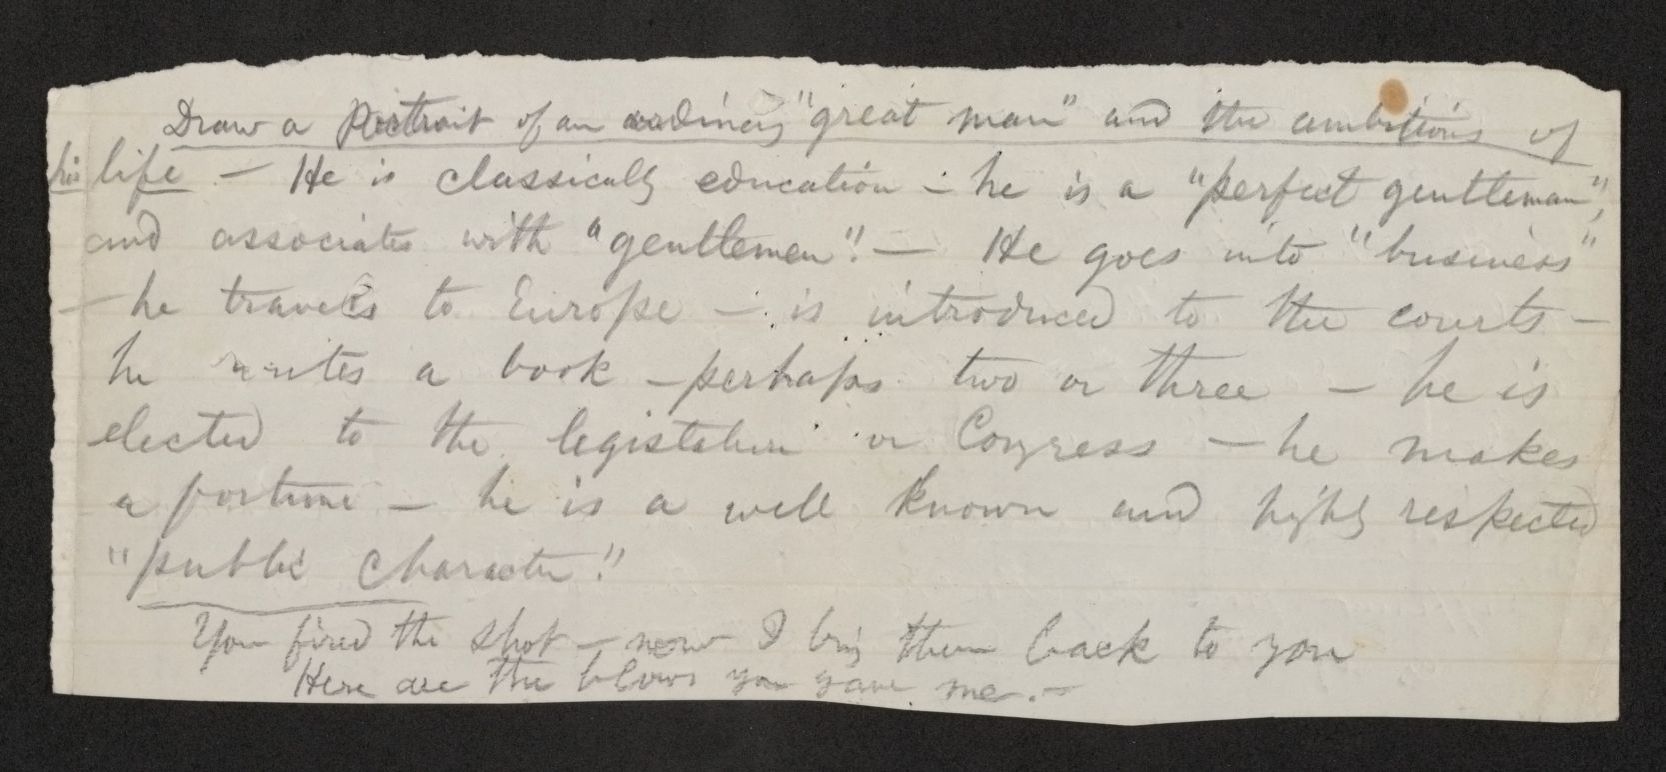 Draw a Portrait of an ordinary "great man" and the ambitions of
his life — He is classically education — he is a "perfect gentleman",
and associates with "gentlemen"! — He goes into "business"
— he travels to Europe — is introduced to the courts —
he writes a book — perhaps two or three — he is
elected to the legislature or Congress — he makes
a fortune — he is a well known and highly respected
"public character."
You fired the shot — now I bring them back to you
Here are the blows you gave me. —